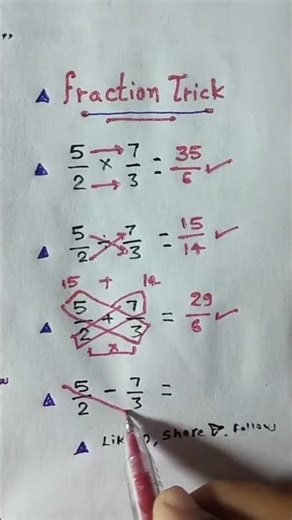 Fraction Trick
5/2 × 7/3 = 35/6 ✓
5/2 ÷ 7/3 = 15/14 ✓
15 + 14
5/2 + 7/3 = 29/6 ✓
×
5/2 - 7/3 =
Share ▷. follow